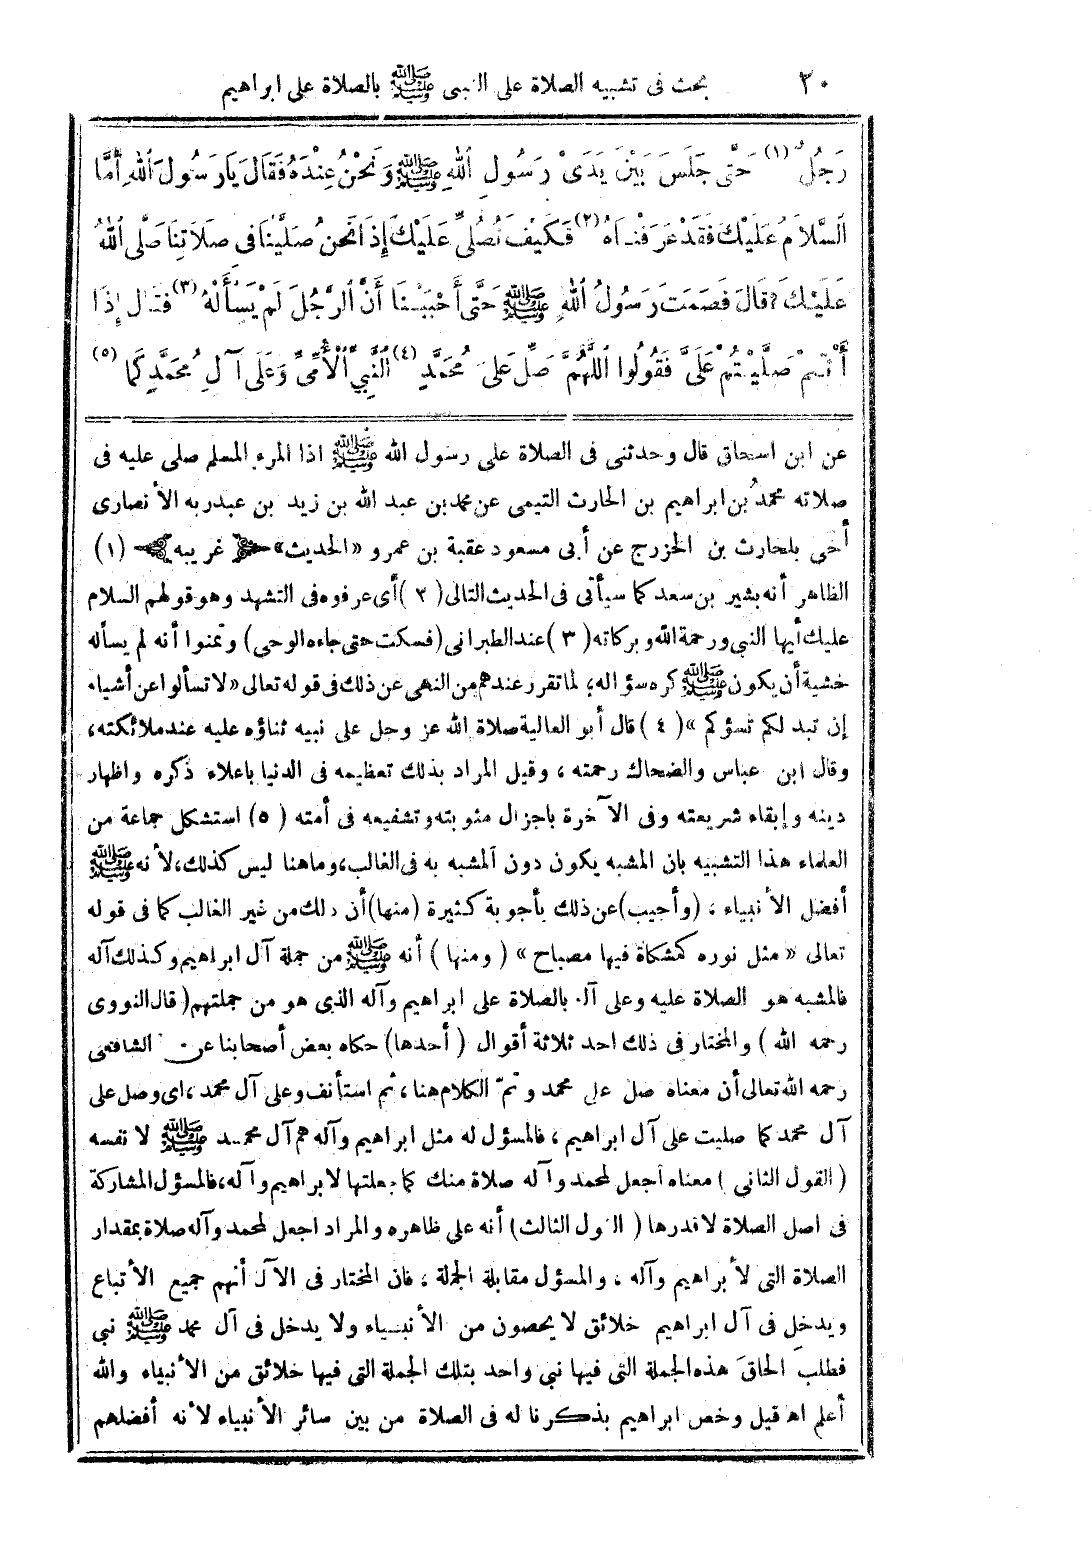 ٢٠ بحث فى تشبيه الصلاة على النبى ﷺ بالصلاة على ابراهيم
رَجُلٌ (١) حَتَّى جَلَسَ بَيْنَ يَدَىْ رَسُولِ اللهِ ﷺ وَنَحْنُ عِنْدَهُ فَقَالَ يَا رَسُولَ اللهِ أَمَّا
السَّلَامُ عَلَيْكَ فَقَدْ عَرَفْنَاهُ (٢) فَكَيْفَ نُصَلِّى عَلَيْكَ إِذَا نَحْنُ صَلَّيْنَا فِى صَلَاتِنَا صَلَّى اللهُ
عَلَيْكَ؟ قَالَ فَصَمَتَ رَسُولُ اللهِ ﷺ حَتَّى أَحْبَبْنَا أَنَّ الرَّجُلَ لَمْ يَسْأَلْهُ (٣) فَقَالَ إِذَا
أَنْتُمْ صَلَّيْتُمْ عَلَىَّ فَقُولُوا اللَّهُمَّ صَلِّ عَلَى مُحَمَّدٍ (٤) النَّبِىِّ الْأُمِّىِّ وَعَلَى آلِ مُحَمَّدٍ كَمَا (٥)
عن ابن اسحاق قال وحدثنى فى الصلاة على رسول الله ﷺ اذا المرء المسلم صلى عليه فى
صلاته محمد بن ابراهيم بن الحارث التيمى عن محمد بن عبد الله بن زيد بن عبدربه الأنصارى
أخى بلحارث بن الخزرج عن أبى مسعود عقبة بن عمرو «الحديث» غريبه (١)
الظاهر أنه بشير بن سعد كما سيأتى فى الحديث التالى (٢) أى عرفوه فى التشهد وهو قولهم السلام
عليك أيها النبى ورحمة الله وبركاته (٣) عند الطبرانى (فسكت حتى جاءه الوحى) وتمنوا أنه لم يسأله
خشية أن يكون ﷺ كره سؤاله؛ لما تقرر عندهم من النهى عن ذلك فى قوله تعالى «لا تسألوا عن أشياء
إن تبد لكم تسؤكم» (٤) قال أبو العالية صلاة الله عز وجل على نبيه ثناؤه عليه عند ملائكته،
وقال ابن عباس والضحاك رحمته، وقيل المراد بذلك تعظيمه فى الدنيا باعلاء ذكره واظهار
دينه وإبقاء شريعته وفى الآخرة باجزال مثوبته وتشفيعه فى أمته (٥) استشكل جماعة من
العلماء هذا التشبيه بان المشبه يكون دون المشبه به فى الغالب، وما هنا ليس كذلك، لأنه ﷺ
أفضل الأنبياء، (وأجيب) عن ذلك بأجوبة كثيرة (منها) أن ذلك من غير الغالب كما فى قوله
تعالى «مثل نوره كمشكاة فيها مصباح» (ومنها) أنه ﷺ من جملة آل ابراهيم وكذلك آله
فالمشبه هو الصلاة عليه وعلى آله بالصلاة على ابراهيم وآله الذى هو من جملتهم (قال النووى
رحمه الله) والمختار فى ذلك احد ثلاثة أقوال (أحدها) حكاه بعض أصحابنا عن الشافعى
رحمه الله تعالى أن معناه صل على محمد وتمّ الكلام هنا، ثم استأنف وعلى آل محمد، اى وصل على
آل محمد كما صليت على آل ابراهيم، فالمسؤل له مثل ابراهيم وآله هم آل محمد ﷺ لا نفسه
(القول الثانى) معناه اجعل لمحمد وآله صلاة منك كما جعلتها لابراهيم وآله، فالمسؤل المشاركة
فى اصل الصلاة لا قدرها (القول الثالث) أنه على ظاهره والمراد اجعل لمحمد وآله صلاة بمقدار
الصلاة التى لأبراهيم وآله، والمسؤل مقابلة الجملة، فان المختار فى الآل أنهم جميع الأتباع
ويدخل فى آل ابراهيم خلائق لا يحصون من الأنبياء ولا يدخل فى آل محمد ﷺ نبي
فطلب الحاق هذه الجملة التى فيها نبي واحد بتلك الجملة التى فيها خلائق من الأنبياء والله
أعلم اه قيل وخص ابراهيم بذكرنا له فى الصلاة من بين سائر الأنبياء لأنه أفضلهم